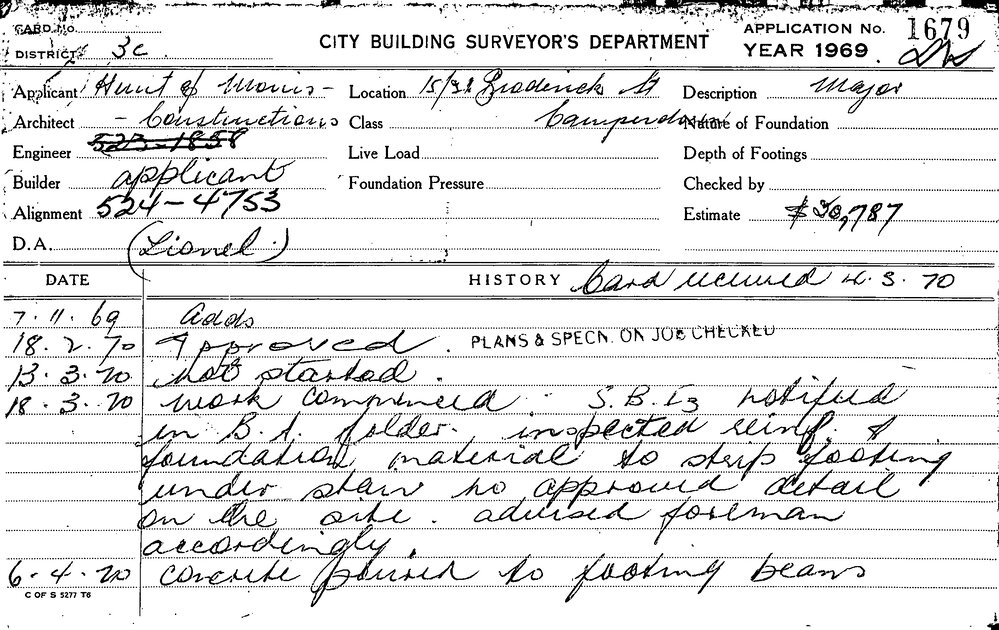 CARD No.
DISTRICT 3c
CITY BUILDING SURVEYOR'S DEPARTMENT
APPLICATION No. 1679
YEAR 1969.
Applicant Hunt & Morris - Location 15/31 Broderick St Description Major
Architect - Constructions Class Camperdown Nature of Foundation
Engineer 523-1858 Live Load Depth of Footings
Builder applicant Foundation Pressure Checked by
Alignment 524-4753 Estimate $30,787
D.A. (Lionel.)
DATE HISTORY Card received 4.3.70
7.11.69 Adds
18.2.70 Approved. PLANS & SPECN. ON JOB CHECKED
13.3.70 not started.
18.3.70 work commenced S.B.I notified
in B.A. folder. inspected reinf. &
foundation material to strip footing
under stair no approved detail
on the site. advised foreman
accordingly.
6.4.70 concrete poured to footing beams
C OF S 5277 T6